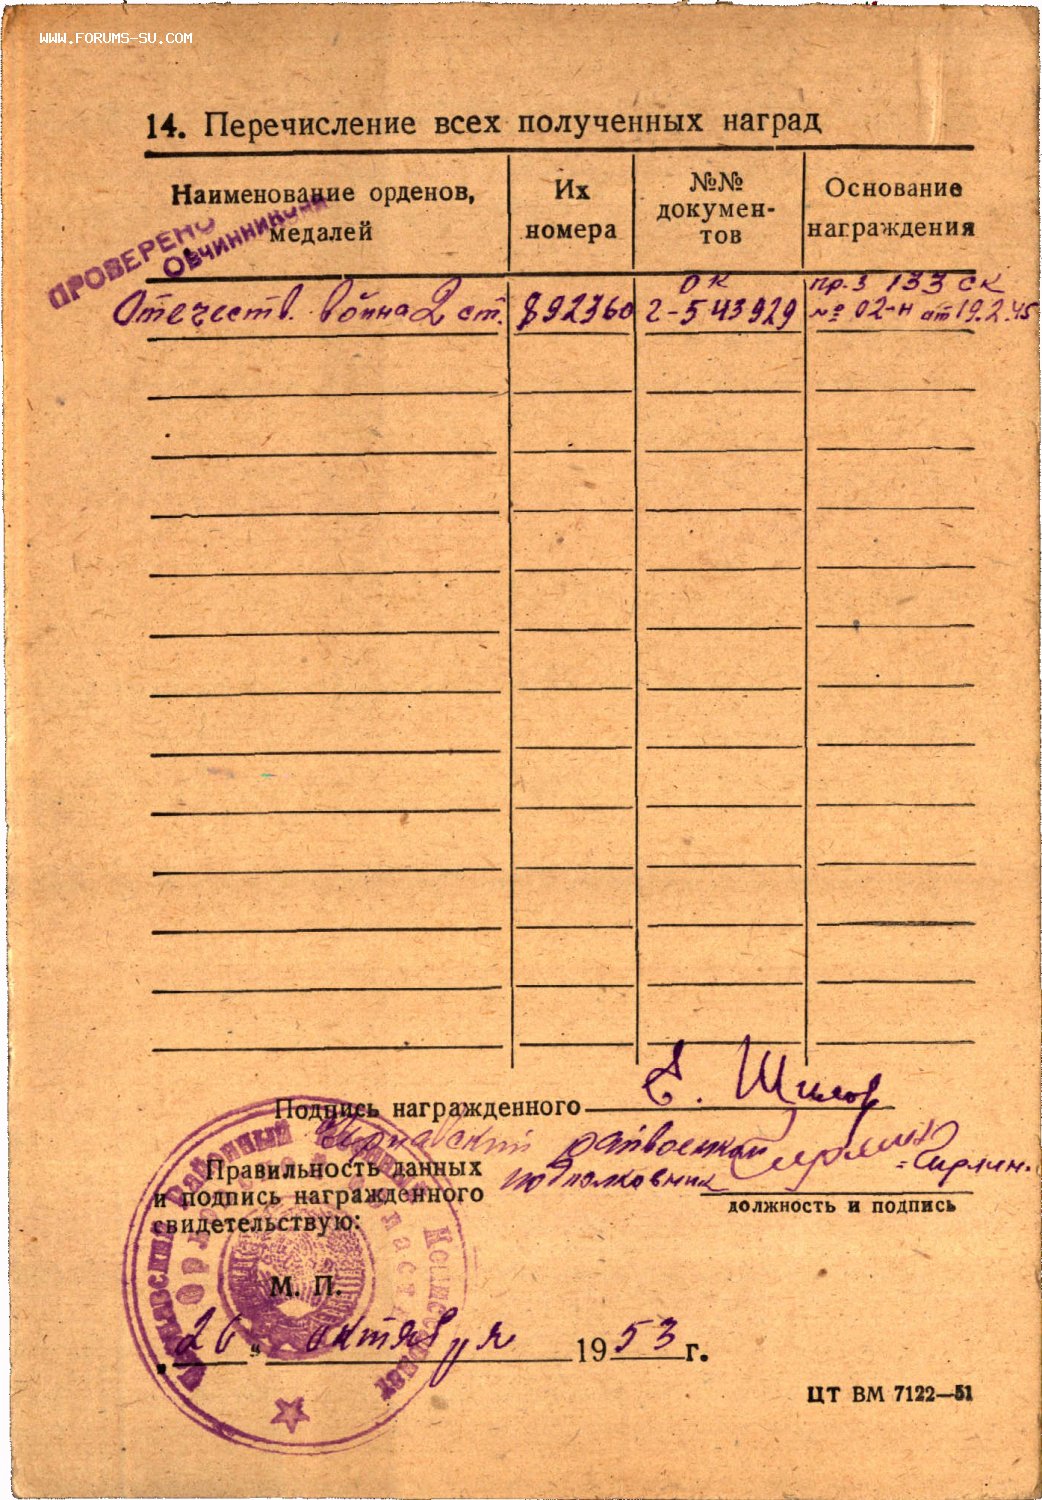 WWW.FORUMS-SU.COM
14. Перечисление всех полученных наград
Наименование орденов, медалей
Их номера
№№ докумен-
тов
Основание награждения
ПРОВЕРЕНО
Овчинникова
Отечеств. война 2 ст. 892760 ОК Г-543929 пр. 133 СК
№ 02-н от 19.2.45
Подпись награжденного Шилов
райвоенком
Правильность данных
и подпись награжденного
свидетельствую:
подполковник
должность и подпись
Районный Военный Комиссариат
Орловской области
М. П.
„ 26 " октября 1953 г.
ЦТ ВМ 7122—51